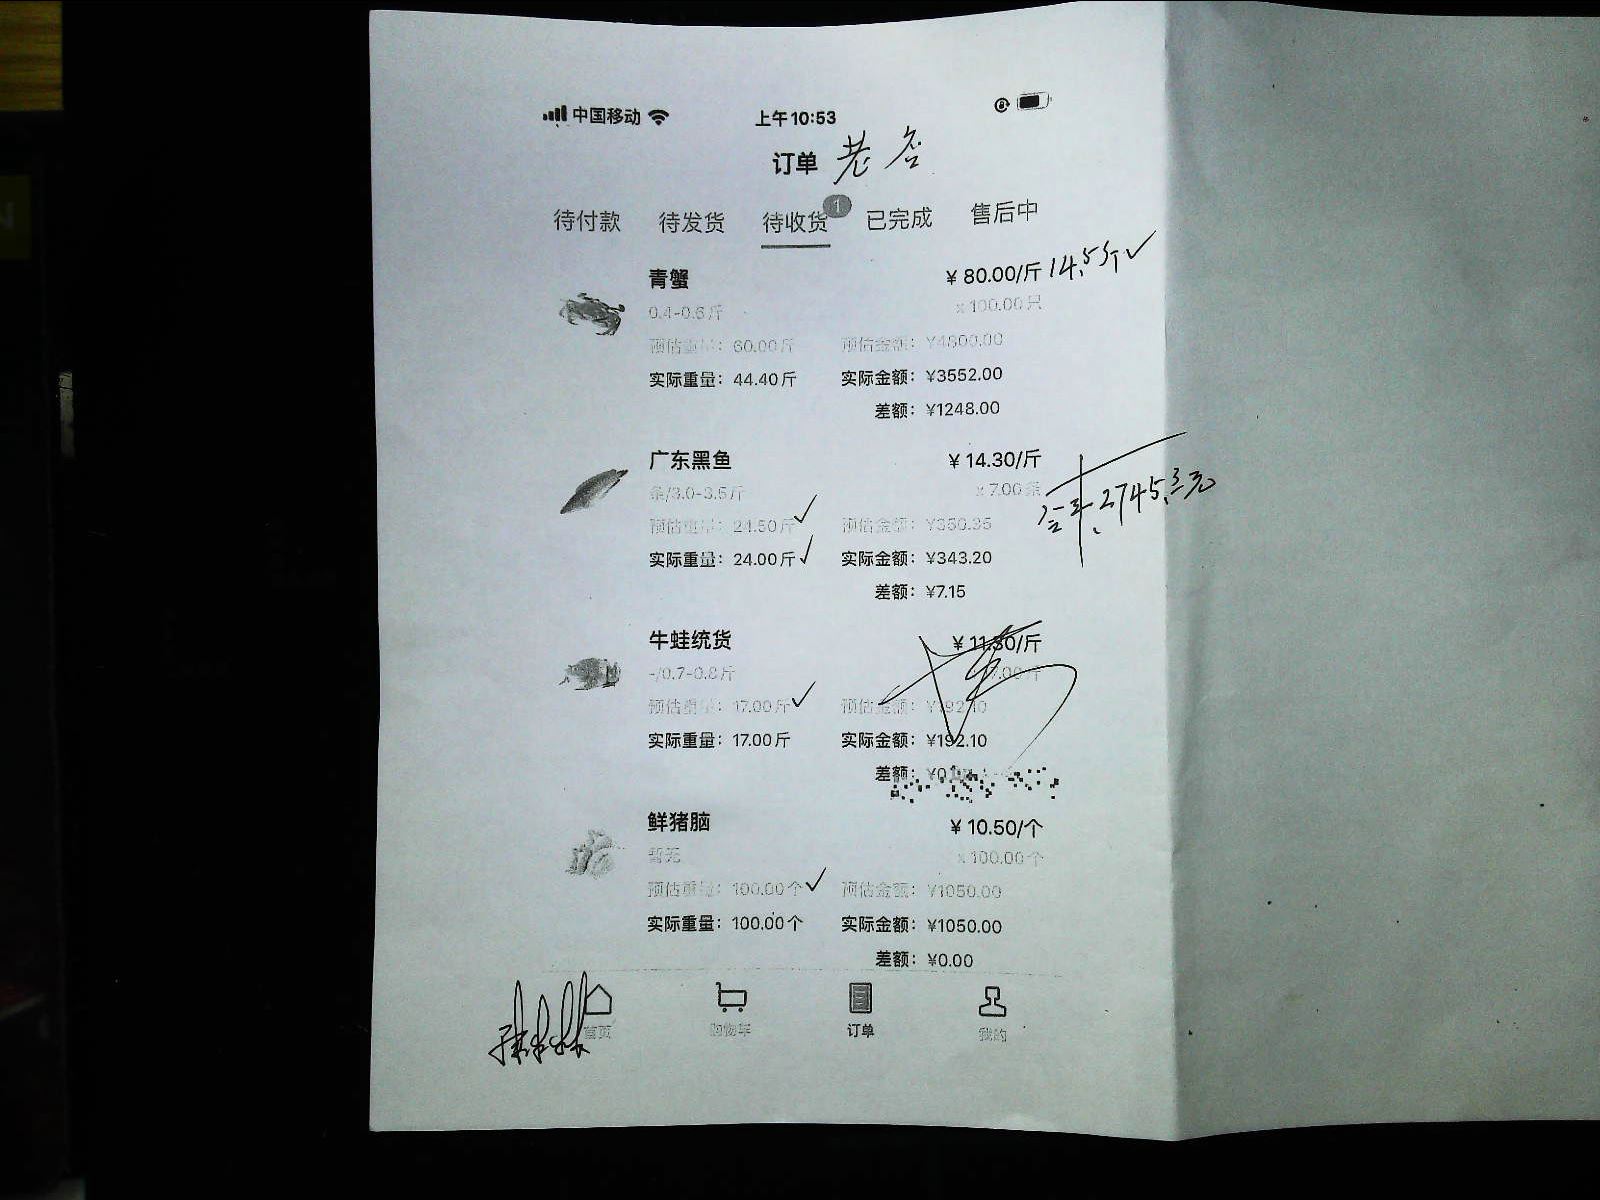 中国移动 上午10:53
订单
待付款 待发货 待收货 1 已完成 售后中
青蟹 ¥80.00/斤 14.5斤✓
0.4-0.6斤 x100.00只
预估重量：60.00斤 预估金额：¥4800.00
实际重量：44.40斤 实际金额：¥3552.00
差额：¥1248.00
广东黑鱼 ¥14.30/斤
条/3.0-3.5斤 x7.00条
2745.3元
预估重量：24.50斤✓ 预估金额：¥350.35
实际重量：24.00斤✓ 实际金额：¥343.20
差额：¥7.15
牛蛙统货 ¥11.30/斤
-/0.7-0.8斤
预估重量：17.00斤✓ 预估金额：¥192.10
实际重量：17.00斤 实际金额：¥192.10
差额：
鲜猪脑 ¥10.50/个
暂无 x100.00个
预估重量：100.00个✓ 预估金额：¥1050.00
实际重量：100.00个 实际金额：¥1050.00
差额：¥0.00
首页 购物车 订单 我的